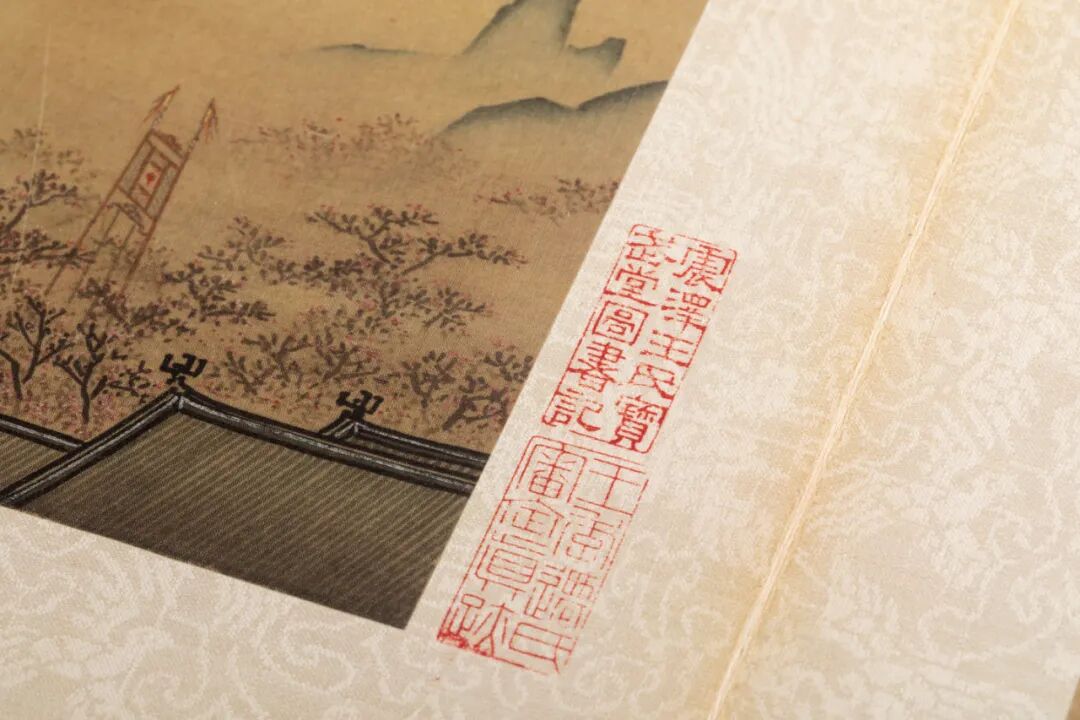 震澤王氏寶
武堂圖書記
王季遷氏
審定真跡